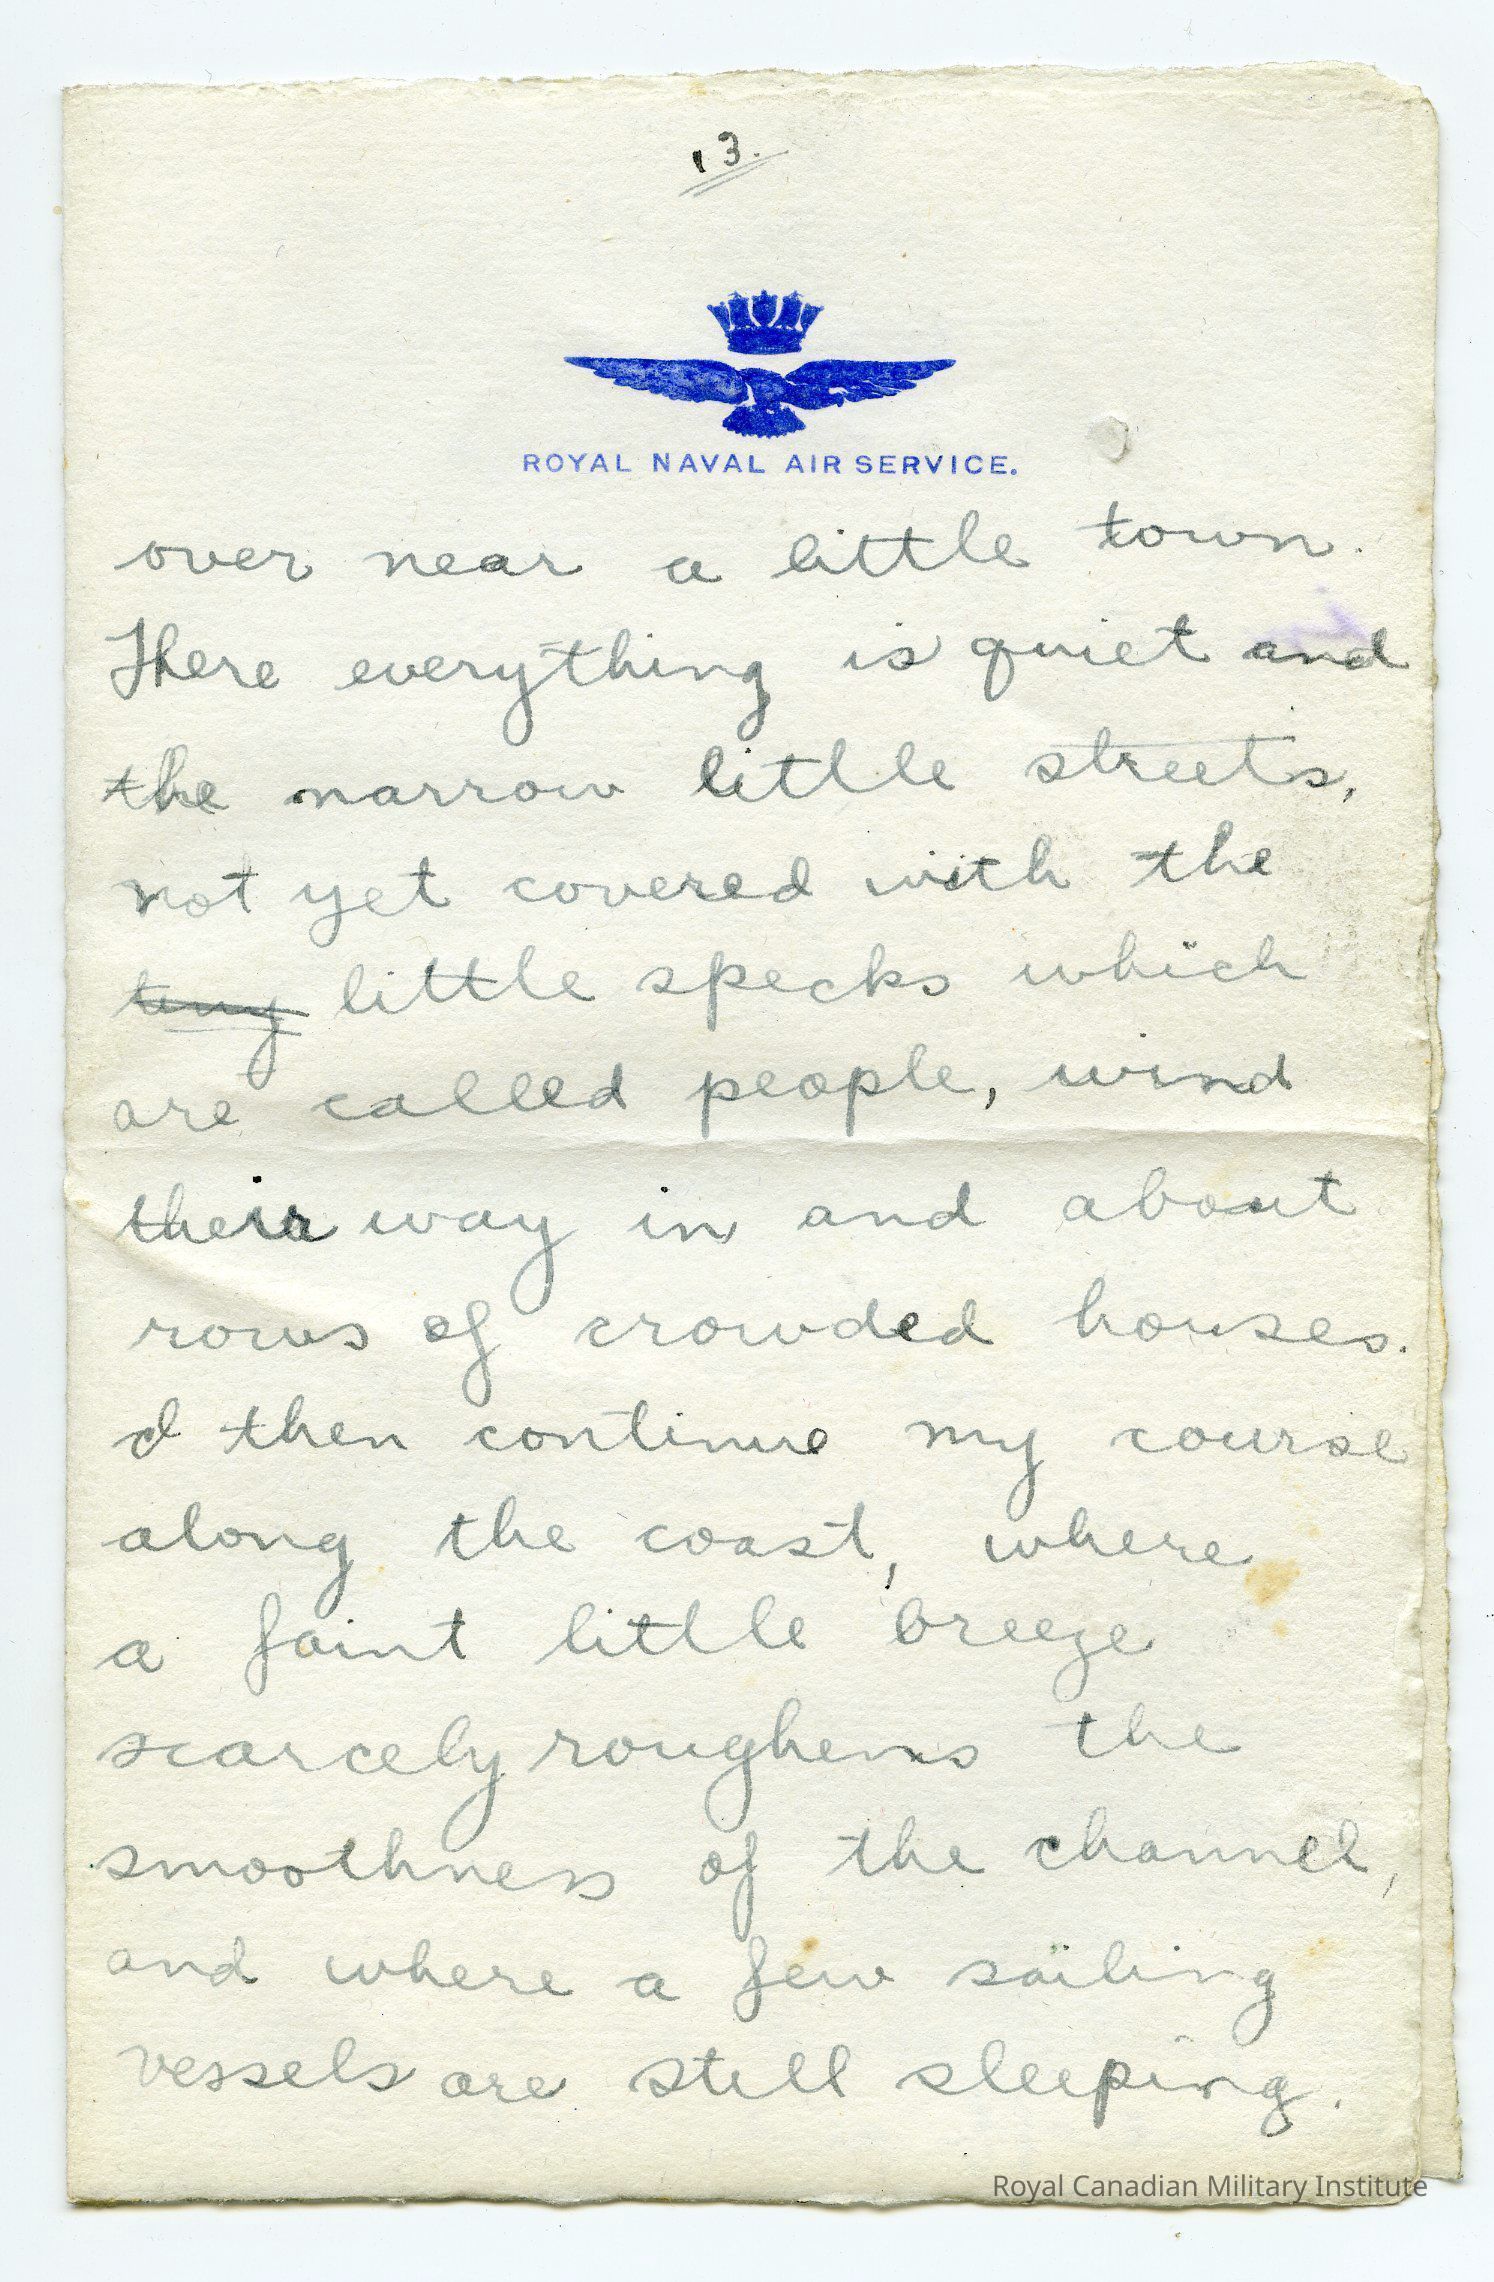 13.
ROYAL NAVAL AIR SERVICE.
over near a little town.
Here everything is quiet and
the narrow little streets,
not yet covered with the
tiny little specks which
are called people, wind
their way in and about
rows of crowded houses.
I then continue my course
along the coast, where
a faint little breeze
scarcely roughens the
smoothness of the channel,
and where a few sailing
vessels are still sleeping.
Royal Canadian Military Institute